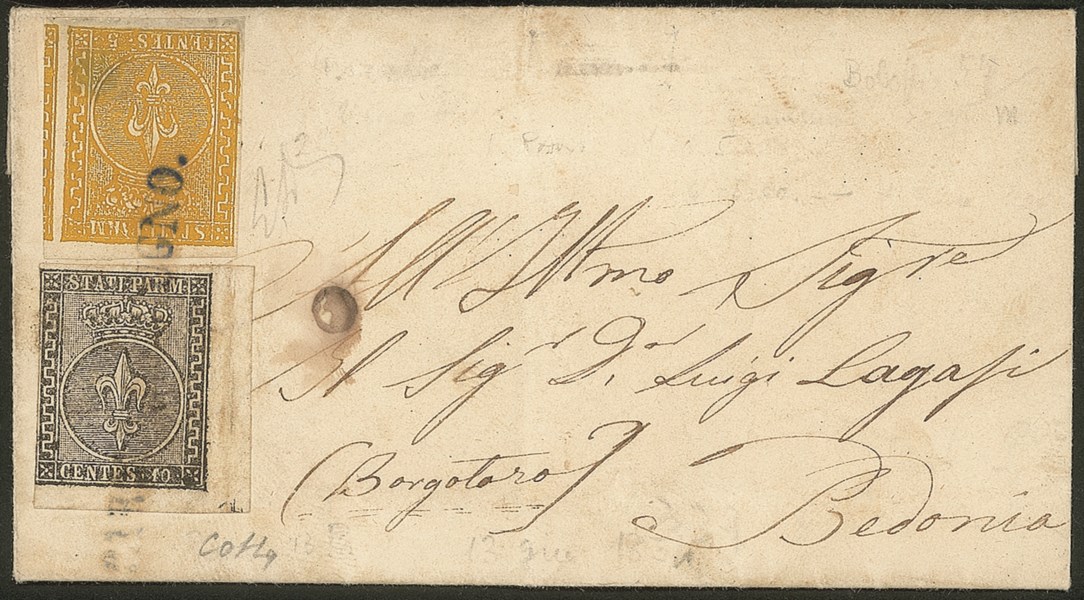 CENTES. 5
STATI PARM
GNO.
STATI PARM
CENTES. 10
All Illmo Sigre
Il Sigr Dr Luigi Lagasi
(Borgotaro)
Bedonia